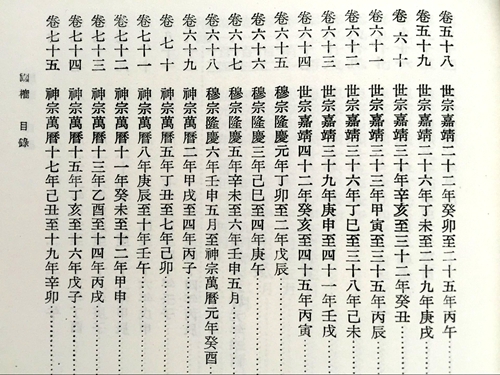 卷五十八 世宗嘉靖二十二年癸卯至二十五年丙午
卷五十九 世宗嘉靖二十六年丁未至二十九年庚戌
卷六十 世宗嘉靖三十年辛亥至三十二年癸丑
卷六十一 世宗嘉靖三十三年甲寅至三十五年丙辰
卷六十二 世宗嘉靖三十六年丁巳至三十八年己未
卷六十三 世宗嘉靖三十九年庚申至四十一年壬戌
卷六十四 世宗嘉靖四十二年癸亥至四十五年丙寅
卷六十五 穆宗隆慶元年丁卯至二年戊辰
卷六十六 穆宗隆慶三年己巳至四年庚午
卷六十七 穆宗隆慶五年辛未至六年壬申五月
卷六十八 穆宗隆慶六年壬申五月至神宗萬曆元年癸酉
卷六十九 神宗萬曆二年甲戌至四年丙子
卷七十 神宗萬曆五年丁丑至七年己卯
卷七十一 神宗萬曆八年庚辰至十年壬午
卷七十二 神宗萬曆十一年癸未至十二年甲申
卷七十三 神宗萬曆十三年乙酉至十四年丙戌
卷七十四 神宗萬曆十五年丁亥至十六年戊子
卷七十五 神宗萬曆十七年己丑至十九年辛卯
國榷 目錄